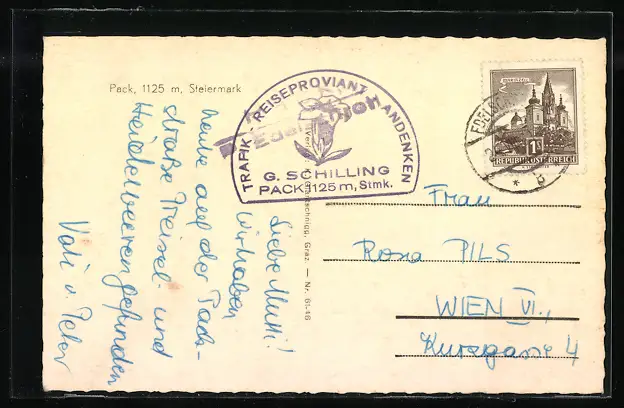 Pack, 1125 m, Steiermark
TRAFIK REISEPROVIANT ANDENKEN
G. SCHILLING
PACK 1125 m, Stmk.
1S
REPUBLIK ÖSTERREICH
Graz. — Nr. 61-46
Liebe Mutti!
Wir haben
heute auf der Pack-
straße Preisel- und
Heidelbeeren gefunden
Vati u. Peter
Frau
Rosa PILS
WIEN VI.,
Kurzgasse 4